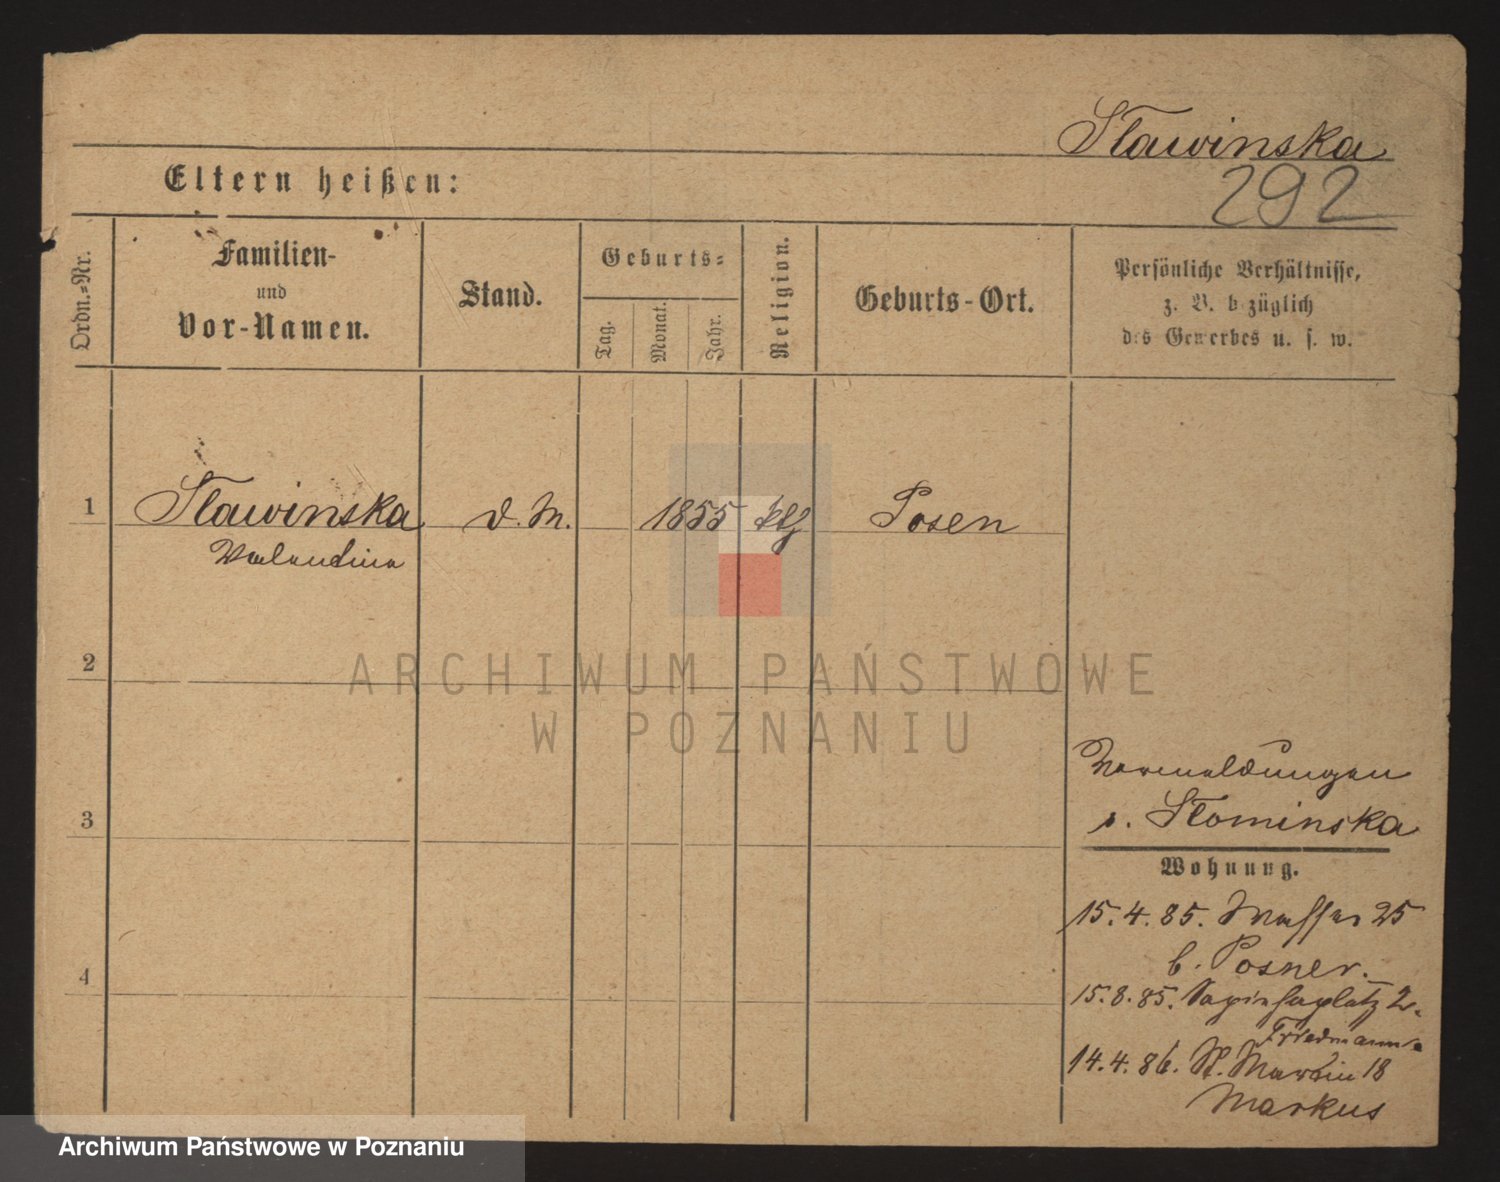 Sławinska
Eltern heißen:
292
Ordn.-Nr.
Familien-
und
Vor-Namen.
Stand.
Geburts-
Tag.
Monat.
Jahr.
Religion.
Geburts-Ort.
Persönliche Verhältnisse,
z. B. bezüglich
des Gewerbes u. s. w.
1 Sławinska d. M. 1855 Posen
Valentina
2
ARCHIWUM PAŃSTWOWE
W POZNANIU
Vermeldungen
s. Słominska
3
Wohnung.
15.4.85. Wasser 25
b. Posner.
4
15.8.85. Sapiehaplatz 2.
Friedmann.
14.4.86. St. Martin 18
Markus
Archiwum Państwowe w Poznaniu